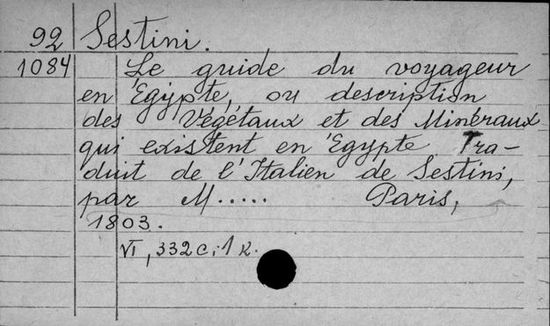 92 Sestini.
1084 Le guide du voyageur
en Egypte, ou description
des Végétaux et des Minéraux
qui existent en Egypte. Tra-
duit de l'Italien de Sestini,
par M..... Paris,
1803.
VI, 332 c; 1 k.